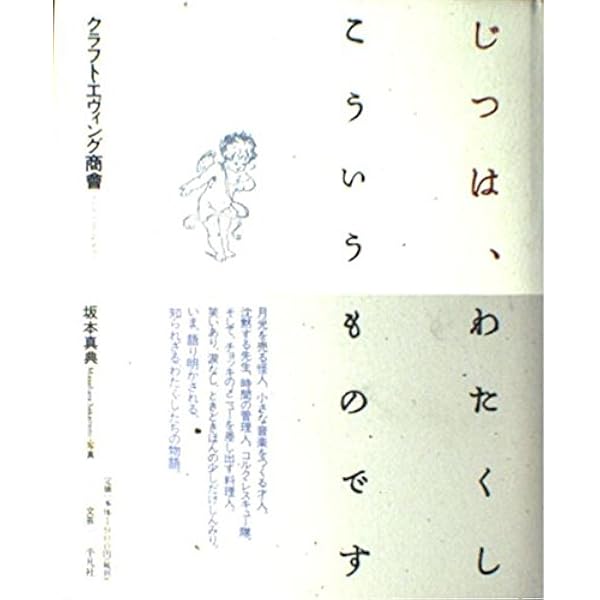 じつは、わたくし
こういうものです
月光を売る怪人。小さな音楽をつくる才人。
沈黙する先生、時間の管理人。コルク・レスキュー隊。
そして、チョッキのメニューを差し出す料理人。
笑いあり、涙なし、ときどきほんの少しだけしんみり。
いま、語り明かされる、
知られざるわたくしたちの物語。
クラフト・エヴィング商會
坂本真典
写真
文芸
平凡社